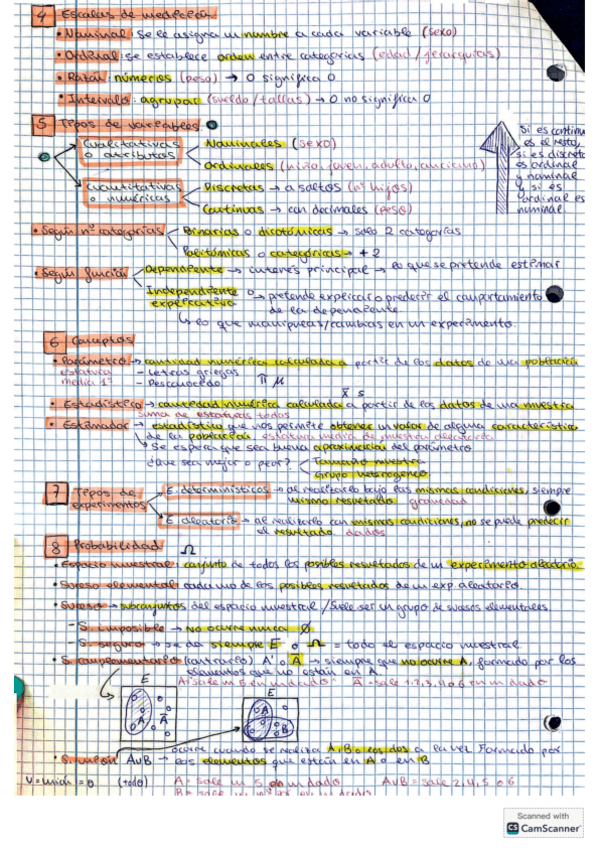 4 Escalas de medición.
• Nominal: se le asigna un nombre a cada variable (sexo)
• Ordinal: se establece orden entre categorías (edad / jerarquías)
• Razón: números (peso) → 0 significa 0
• Intervalo: agrupar (sueldo / tallas) → 0 no significa 0
5 Tipos de variables.
Cualitativas o atributos
Nominales (sexo)
Ordinales (niño, joven, adulto, anciano)
Cuantitativas o numéricas
Discretas → a saltos (nº hijos)
Continuas → con decimales (peso)
Si es continua
es el resto,
si es discreta
es ordinal
y nominal
y si es
ordinal es
nominal
• Según nº categorías
Binarias o dicotómicas → solo 2 categorías
Politómicas o categóricas → +2
• Según función
Dependiente → interés principal → lo que se pretende estimar
Independiente o explicativa → pretende explicar o predecir el comportamiento
de la dependiente.
↳ lo que manipulas/cambias en un experimento.
6 Conceptos
• Parámetro → cantidad numérica calculada a partir de los datos de una población
estatura media 1º
– Letras griegas π μ
– Desconocido
x̄ s
• Estadístico → cantidad numérica calculada a partir de los datos de una muestra
suma de estaturas todos
• Estimador → estadístico que nos permite obtener un valor de alguna característica
de la población. estatura media de muestra aleatoria
↳ Se espera que sea buena aproximación del parámetro
¿Que sea mejor o peor?
Tamaño muestra
Grupo heterogéneo
7 Tipos de experimentos
E. determinísticos → al realizarlo bajo las mismas condiciones, siempre
mismo resultado gravedad
E. aleatorio → al realizarlo con mismas condiciones, no se puede predecir
el resultado. dados
8 Probabilidad Ω
• Espacio muestral: conjunto de todos los posibles resultados de un experimento aleatorio.
• Suceso elemental: cada uno de los posibles resultados de un exp. aleatorio.
• Suceso → subconjuntos del espacio muestral / Suele ser un grupo de sucesos elementales.
– S. imposible → no ocurre nunca Ø
– S. seguro → se da siempre E o Ω = todo el espacio muestral
• S. complementario (contrario) A' o Ā → siempre que no ocurre A, formado por los
elementos que no están en A
A = sale un 5 en un dado. Ā = sale 1,2,3,4 o 6 en un dado
E
A
Ā
E
A
B
• S. unión A∪B → ocurre cuando se realiza A, B o los dos a la vez. Formado por
los elementos que están en A o en B
∪ = unión = o (todo)
A = sale un 5 en un dado
A∪B = sale 2, 4, 5 o 6
Scanned with
CS CamScanner